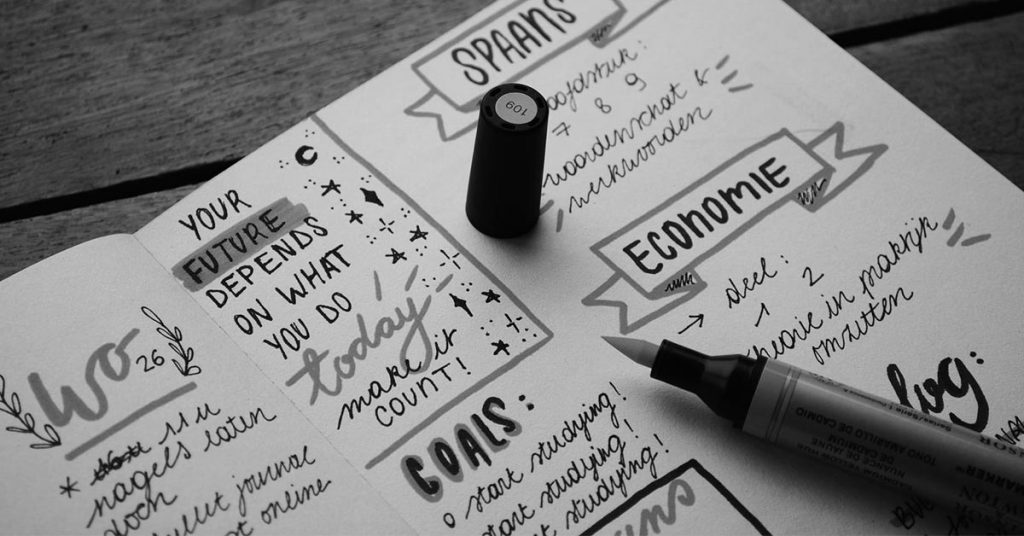 Wo
26
* 11u
nagels laten
doch
bullet journal
online
YOUR
FUTURE
DEPENDS
ON WHAT
YOU DO
today
make it
COUNT!
GOALS:
o start studying!
start studying!
studying!
SPAANS
hoofdstuk:
7 8 9
woordenschat &
werkwoorden
ECONOMIE
→ deel:
1 2
theorie in praktijk
omzetten
log:
109
NUANCE JAUNE
DE CADMIUM
TONO AMARILLO DE CADMIO
MARKER™